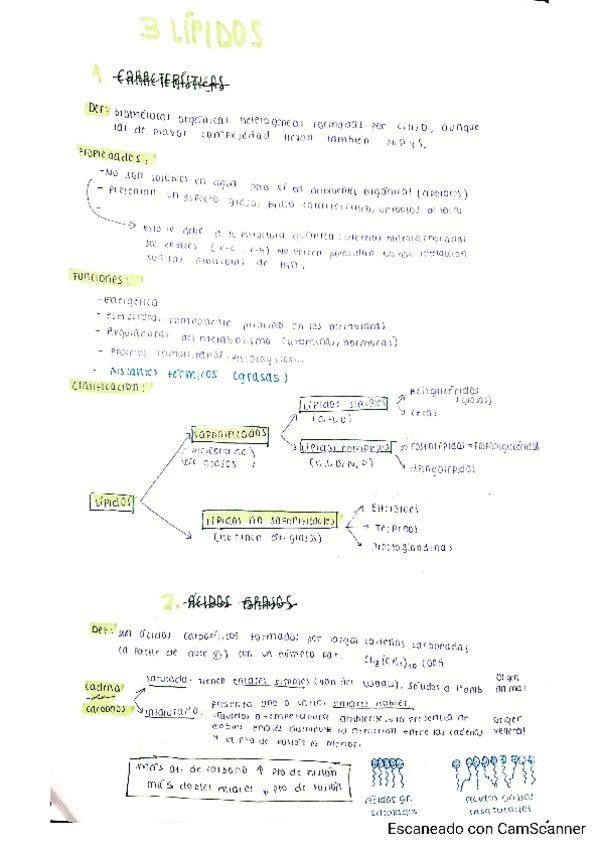 3 LÍPIDOS
1 CARACTERÍSTICAS
Def: biomoléculas orgánicas heterogéneas formadas por C, H, O, aunque
las de mayor complejidad llevan también N, P y S.
Propiedades:
- No son solubles en agua pero sí en disolventes orgánicos (apolares)
- Presentan un aspecto graso, brillo característico, untuosos al tacto
Esto se debe a su estructura química: cadenas hidrocarbonadas
sus enlaces (C-C, C-H) no
con las moléculas de H₂O.
Funciones:
- Energética
- Estructural: componente principal en las membranas
- Reguladoras del metabolismo (vitaminas, hormonas)
- Procesos
- Aislantes térmicos (grasas)
Clasificación:
Lípidos
Saponificables
Lípidos simples
(C, H, O)
Acilglicéridos
(grasas)
Ceras
Lípidos complejos
(C, H, O, N, P)
Fosfolípidos = Fosfoglicéridos
Esfingolípidos
Lípidos no saponificables
(no tienen ác. grasos)
Esteroides
Terpenos
Prostaglandinas
2. ÁCIDOS GRASOS
Def: son ácidos carboxílicos formados por largas cadenas carbonadas
con un número par. CH₃(CH₂)₁₀COOH
cadena
carbonos
saturada: tienen enlaces simples (Van der Waals). Sólidos a Tª amb
Origen
animal
insaturada: presenta uno o varios enlaces dobles.
líquidos a temperatura ambiente. La presencia de
dobles enlaces disminuye la atracción entre las cadenas
y el pto de fusión es menor.
Origen
vegetal
más át. de carbono ↑ pto de fusión
más dobles enlaces ↓ pto de fusión
ácidos gr.
saturados
ácidos grasos
insaturados
Escaneado con CamScanner